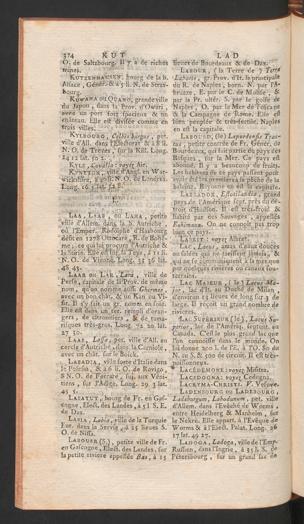 374 KUT LAD
O. de Saltzbourg. Il y a de riches
mines.
KUTZENHAUSEN, bourg de la b.
Alsace, Génér. & à 8 l. N. de Stras-
bourg.
grande ville
du Japon, dans la Prov. d'Owari,
avec un port fort spacieux & un
château. Elle est divisée comme en
trois villes.
KYLBOURG, petite
ville d'All. dans l'Electorat & à 8 l.
N. O. de Treves, sur la Kill. Long.
KYLE, voyez Air.
ville d'Angl. en War-
wickshire, O. de Londres.
Long. 16. lat. 52.
LAA, LAAB, ou LAHA, petite
ville d'Allem. dans la b. Autriche,
où l'Emper. Rodolphe d'Habsbourg
défit en 1278 Ottocare, R. de Bohê-
me, ce qui lui procura l'Autriche &
la Stirie. Elle est sur la Teya, à 11 l.
N. O. de Vienne. Long. 34. 36. lat.
48. 43.
LAAR ou LAR, Lara, ville de
Perse, capitale de la Prov. de même
nom, qu'on nomme aussi Ghermes,
avec un bon chât. & un Kan ou Vi-
sir. Il s'y fait un gr. comm. en soie.
Elle est dans un ter. rempli d'oran-
gers, de citronniers, & de tama-
rinques très-gros. Long. 72. 20. lat.
27. 30.
LAAS, pet. ville d'All. en
cercle d'Autriche, dans la Carniole,
avec un chât. sur le Boick.
LABADIA, ville forte d'Italie dans
le Polesin, & à 6 l. O. de Rovigo,
S. N. O. de Ferrare, sur aux Véni-
tiens, sur l'Adige. Long. 29. 3. lat.
45. 5.
LABATUT, bourg de Fr. en Gas-
cogne, Elect. des Landes, à 5 l. S. E.
de Dax.
LABIA, Labia, ville de la Turquie
Eur. dans la Servie, à 25 lieues S.
O. de Nissa.
LABOUR (S.), petite ville de Fr.
en Gascogne, Elect. des Landes, sur
la petite riviere appellée Bas, à 15
lieues de Bourdeaux & de Dax.
LABOUR, (la Terre de) Terra
Laboris, gr. Prov. d'It. la principale
du R. de Naples, born. N. par l'A-
bruzze, E. par le C. de Molise, &
par la Pr. ultér. S. par le golfe de
Naples, O. par la Mer de Toscane
& la Campagne de Rome. Elle est
bien peuplée & très-fertile. Naples
en est la capitale.
LABOUR, (le) Lapurdensis Trac-
tus, petite contrée de Fr. Génér. de
Bourdeaux, qui fait partie du pays des
Basques, sur la Mer. Ce pays est
abond. Il y a beaucoup de fruits.
Les habitans de ce pays passent pour
avoir été les premiers à la pêche de la
baleine. Bayonne en est la capitale.
LABRADOR, Estotilandia, grand
pays de l'Amérique sept. près du dé-
troit d'Hudson. Il est très-froid &
habité par des Sauvages, appellés
Eskimaux. On ne connoît pas trop
bien ce pays.
LABRIT: voyez Albret.
LAC, Lacus, amas d'eaux douces
ou salées qui ne tarissent jamais, &
qui ne se communiquent à la mer que
par quelques rivieres ou canaux sou-
terrains.
LAC MAJEUR, (le) Lacus Ma-
jor, lac d'It. au Duché de Milan,
d'environ 13 lieues de long sur 3 de
large. Il reçoit un grand nombre de
rivieres.
LAC SUPÉRIEUR (le), Lacus Su-
perior, lac de l'Amériq. septent. au
Canada. C'est le plus grand lac que
l'on connoisse dans le monde. On
lui donne 200 l. de l'E. à l'O. 80 du
N. au S. & 500 de circuit. Il est très-
poissonneux.
LACÉDÉMONE: voyez Misitra.
LACEDOGNA: voyez Cedogna.
LACRYMA-CHRISTI. V. Vésuve.
LADENBOURG ou LADEBOURG,
Ladeburgum, Labodunum, pet. ville
d'Allem. dans l'Evêché de Worms,
entre Heidelberg & Manheim, sur
le Nekre. Elle appart. à l'Evêque de
Worms & à l'Elect. Palat. Long. 26.
17. lat. 49. 27.
LADOGA, Ladoga, ville de l'Emp.
Russien, dans l'Ingrie, à 35 l. S. de
Pétersbourg, sur un grand lac de